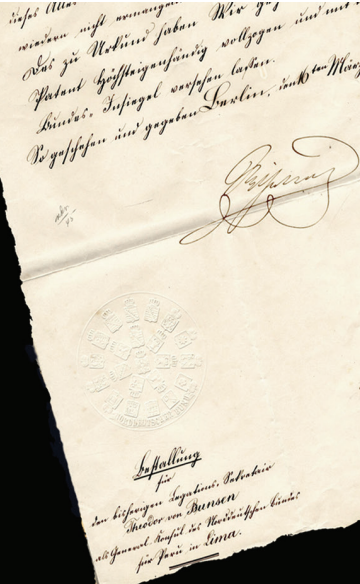 dieses Alles
wiedern nicht ermangeln
Des zu Urkund haben Wir
Patent Höchsteigenhändig vollzogen und mit
Bundes-Insiegel versehen lassen.
So geschehen und gegeben Berlin, den 16ten März
Bestallung
für
den bisherigen Legations-Sekretair
Theodor von Bunsen
als General-Konsul des Norddeutschen Bundes
für Peru in Lima.